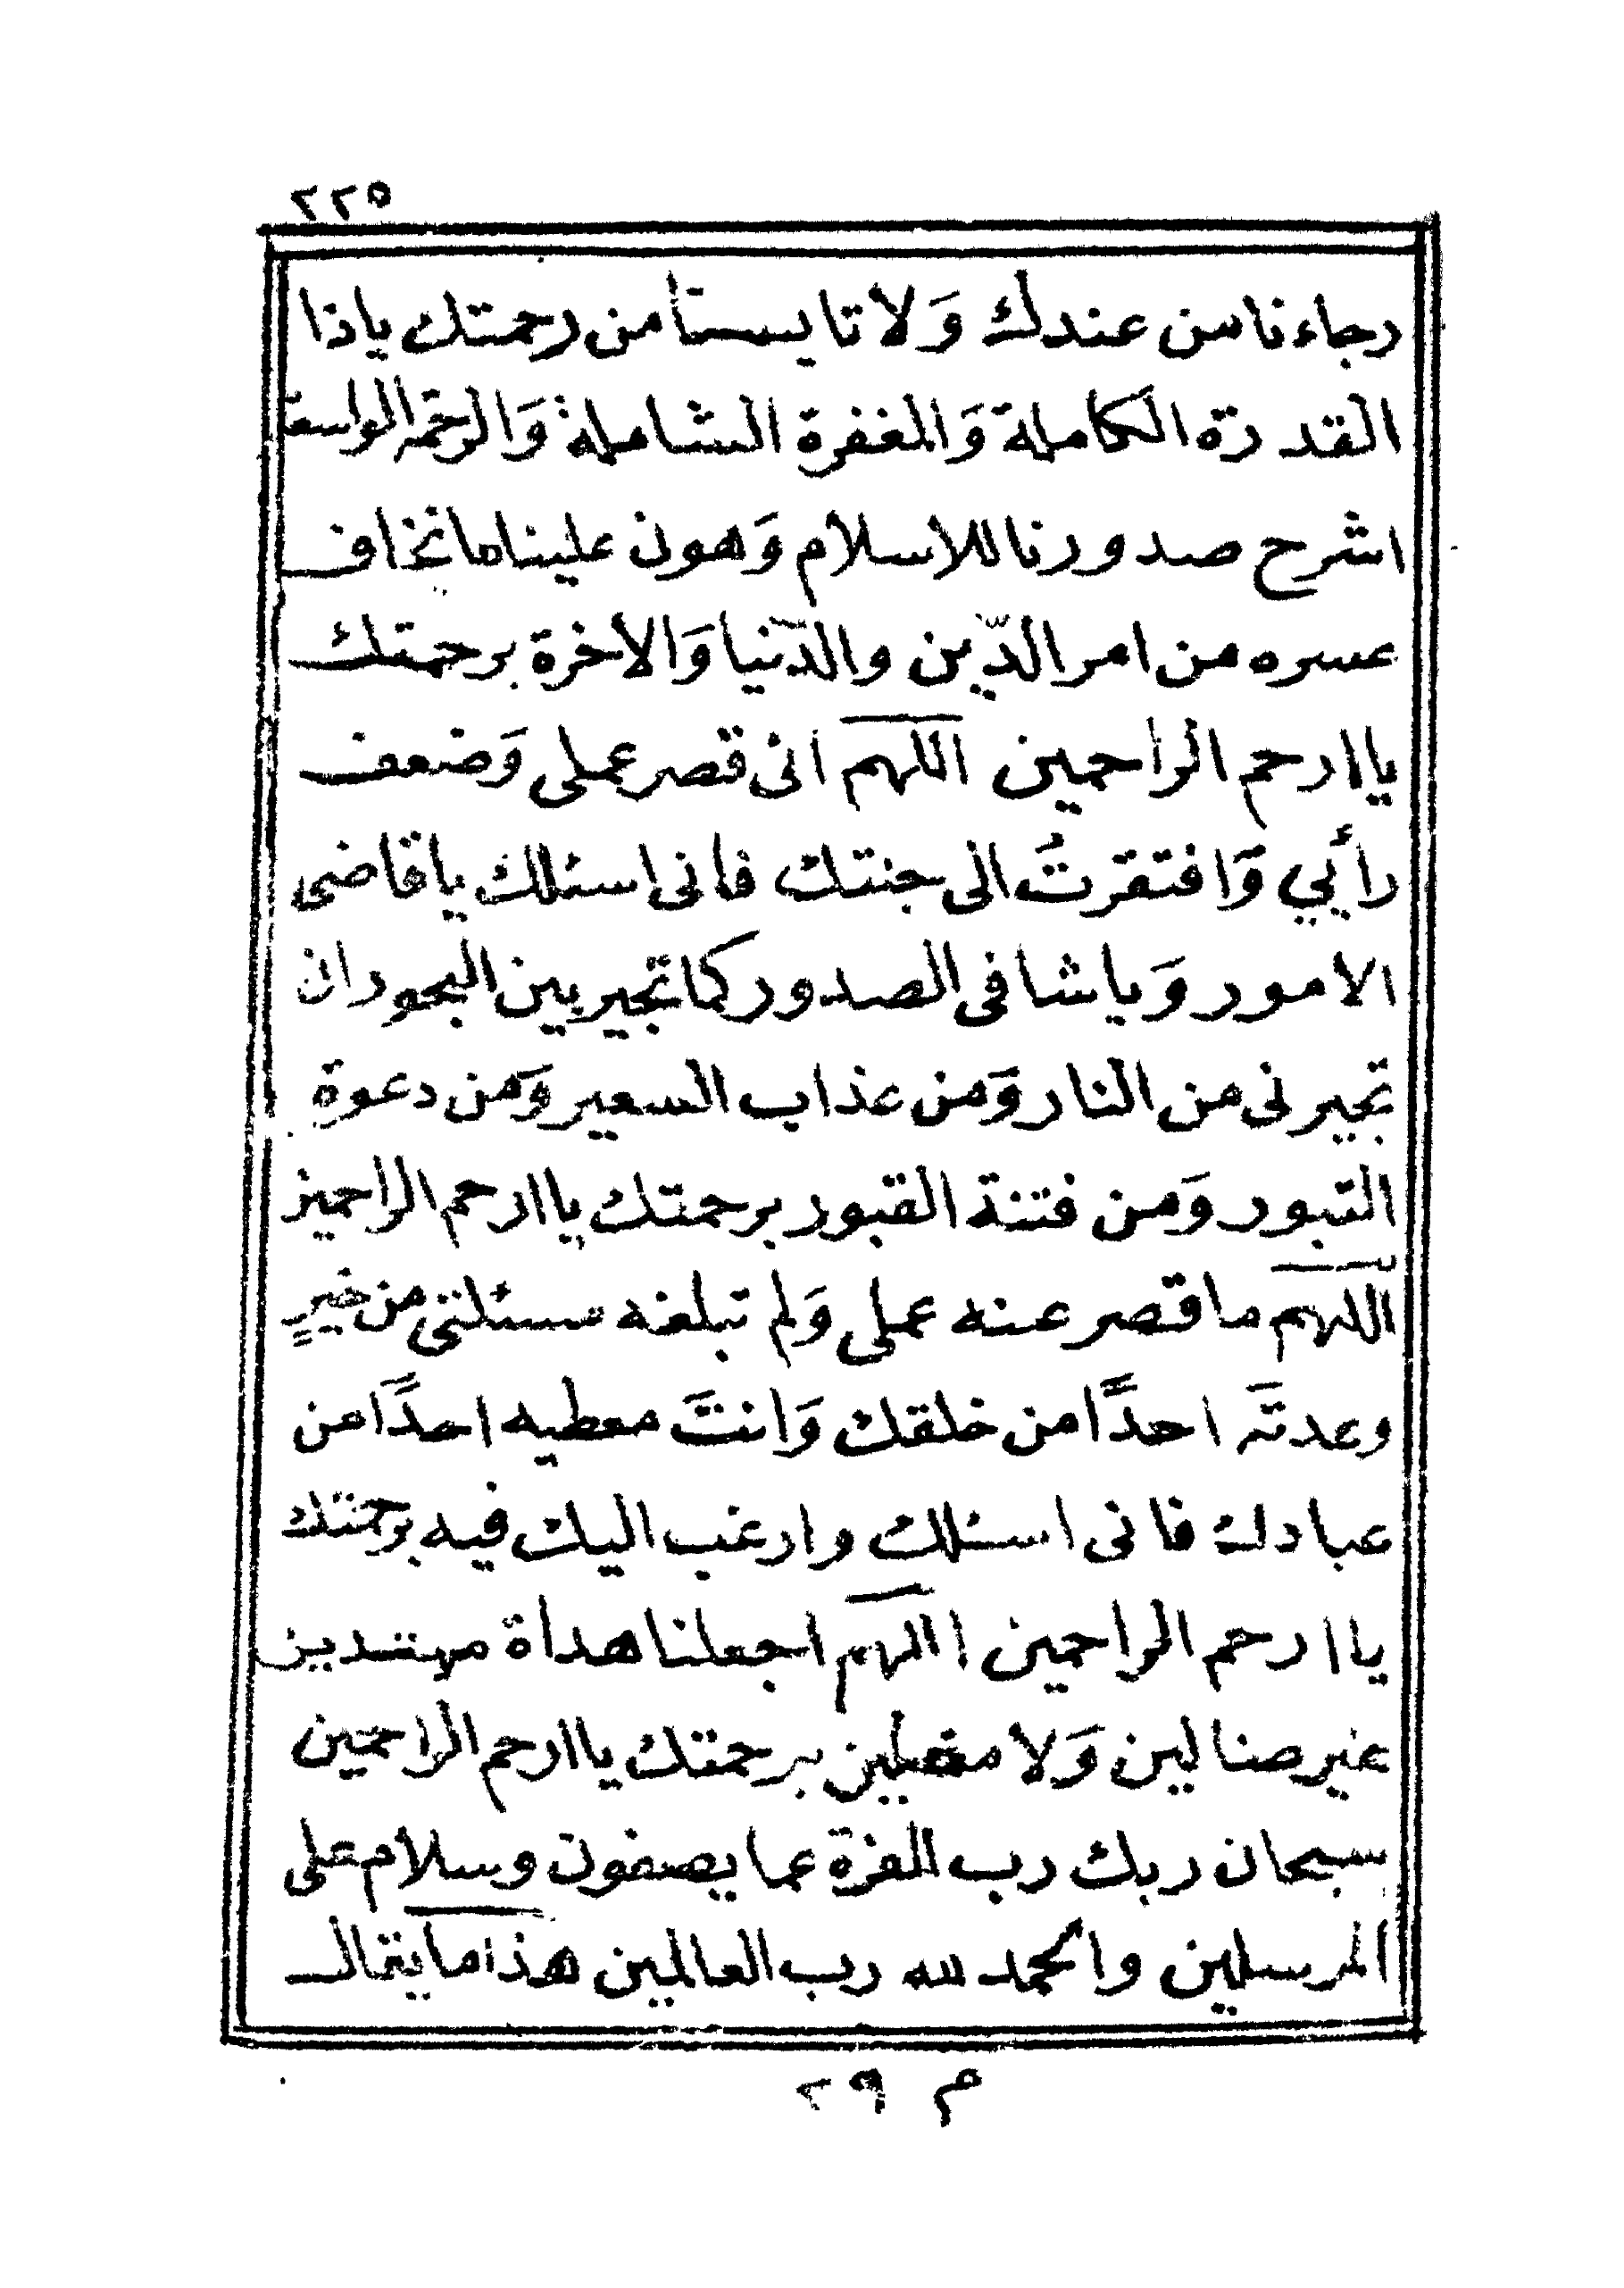 ٢٢٥
رجاءنا من عندك وَلا تايسنا من رحمتك ياذا
القدرة الكاملة وَالمغفرة الشاملة وَالرحمة الواسعة
اشرح صدورنا للاسلام وَهون علينا ما نخاف
عسره من امر الدّين والدّنيا وَالاخرة برحمتك
يا ارحم الراحمين اللهم انى قصر عملى وَضعف
رأيي وَافتقرتُ الى جنتك فانى اسئلك يا قاضى
الامور وَيا شافى الصدور كما تجير بين البحور ان
تجيرنى من النار وَمن عذاب السعير وَمن دعوة
الثبور وَمن فتنة القبور برحمتك يا ارحم الراحمين
اللهم ما قصر عنه عملى وَلم تبلغه مسئلتى من خيرٍ
وعدتَه احدًا من خلقك وَانتَ معطيه احدًا من
عبادك فانى اسئلك وارغب اليك فيه برحمتك
يا ارحم الراحمين اللهم اجعلنا هداة مهتدين
غير ضالين وَلا مضلين برحمتك يا ارحم الراحمين
سبحان ربك رب العزة عما يصفون وسلام على
المرسلين والحمد لله رب العالمين هذا ما يقال
م ٢٩